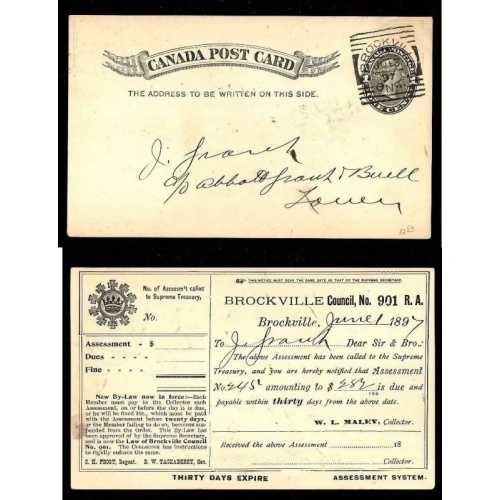 CANADA POST CARD
THE ADDRESS TO BE WRITTEN ON THIS SIDE.
BROCKVILLE
ONE CENT
J. Grant
c/o Abbott Grant & Buell
Town
12.50
THIS NOTICE MUST BEAR THE SAME DATE AS THAT OF THE SUPREME SECRETARY.
No. of Assessm't called
to Supreme Treasury,
Assessment - $
Dues - -
Fine - -
New By-Law now in force:—Each
Member must pay to the Collector each
Assessment, on or before the day it is due,
or be fined, which must be paid
to the Collector before twenty days,
or the Member failing to do so, becomes
suspended from the Order. This By-Law
has been approved of by the Supreme Secretary,
and is now the Law of Brockville Council
No. 901. The COLLECTOR has instructions
to rigidly enforce the same.
C. H. FROST, Regent. R. W. TACKABERRY, Sec.
BROCKVILLE Council, No. 901 R. A.
Brockville, June 1 1897
To J. Grant Dear Sir & Bro:
The above Assessment has been called to the Supreme
Treasury, and you are hereby notified that Assessment
No 245 amounting to $ 282 is due and
payable within thirty days from the above date.
W. L. MALEY, Collector.
Received the above Assessment 18
Collector.
THIRTY DAYS EXPIRE ASSESSMENT SYSTEM.